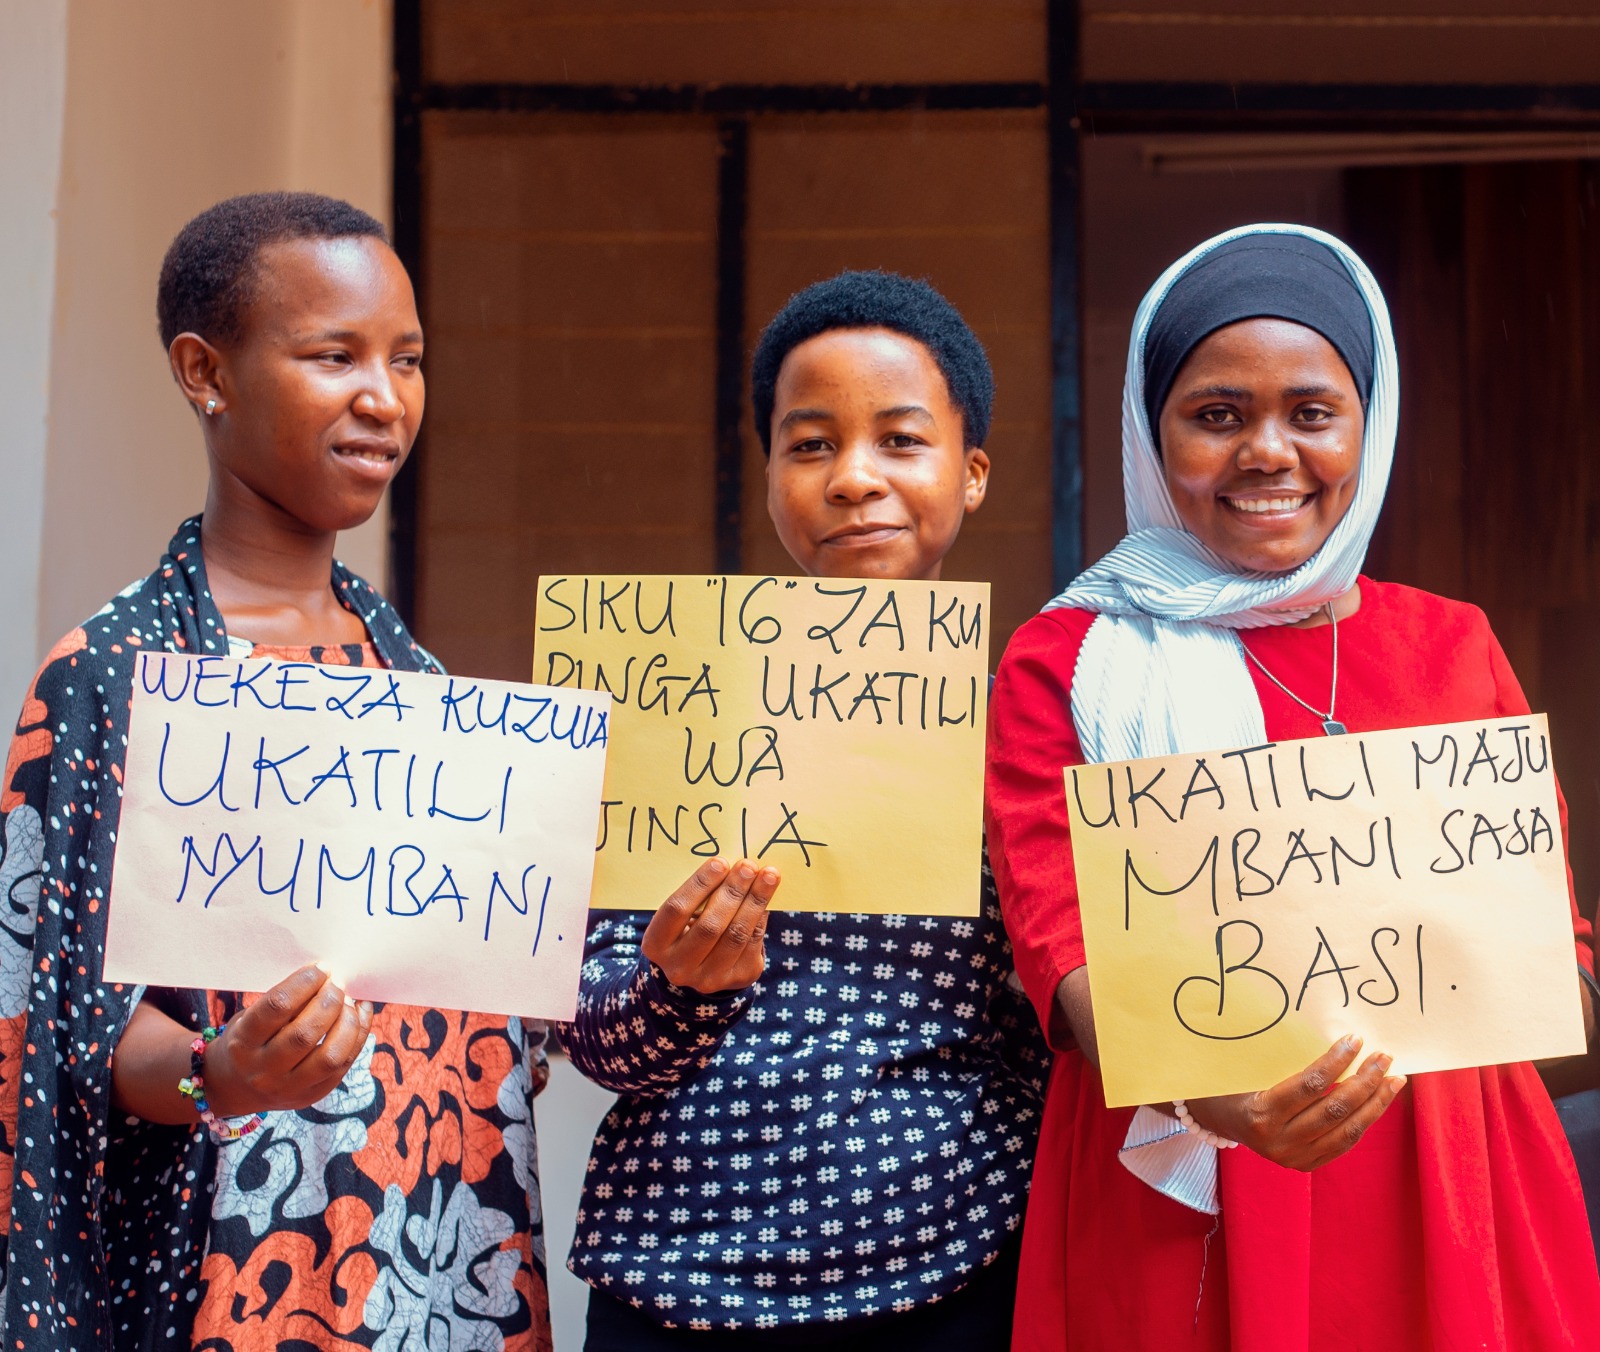 WEKEZA KUZUIA
UKATILI
NYUMBANI.
SIKU "16" ZA KU
PINGA UKATILI
WA
JINSIA
UKATILI MAJU
MBANI SASA
BASI.